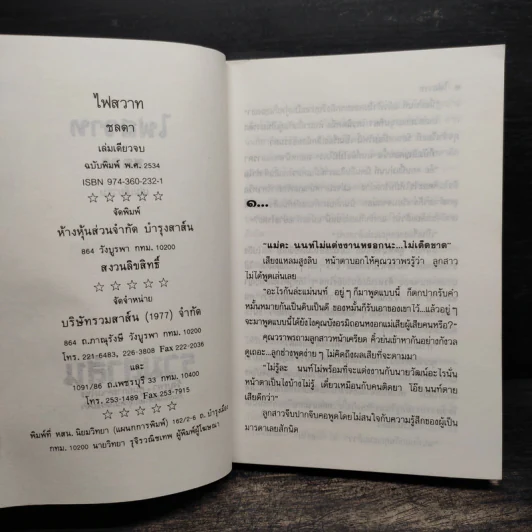 ไฟสวาท
ชลดา
เล่มเดียวจบ
ฉบับพิมพ์ พ.ศ. 2534
ISBN 974-360-232-1
☆ ☆ ☆ ☆ ☆
จัดพิมพ์
ห้างหุ้นส่วนจำกัด บำรุงสาส์น
864 วังบูรพา กทม. 10200
สงวนลิขสิทธิ์
☆ ☆ ☆ ☆ ☆
จัดจำหน่าย
บริษัทรวมสาส์น (1977) จำกัด
864 ถ.ภาณุรังษี วังบูรพา กทม. 10200
โทร. 221-6483, 226-3808 Fax 222-2036
และ
1091/86 ถ.เพชรบุรี 33 กทม. 10400
โทร. 253-1489 Fax 253-7915
☆ ☆ ☆ ☆ ☆
พิมพ์ที่ หสน. นิยมวิทยา (แผนกการพิมพ์) 162/2-6 ถ. บำรุงเมือง
กทม. 10200 นายวิทยา รุจิรวณิชเทพ ผู้พิมพ์ผู้โฆษณา
๑...
"แม่คะ นนท์ไม่แต่งงานหรอกนะ...ไม่เด็ดขาด"
เสียงแหลมสูงลิบ หน้าตาบอกให้คุณวราพรรู้ว่า ลูกสาว
ไม่ได้พูดเล่นเลย
"อะไรกันล่ะแม่นนท์ อยู่ ๆ ก็มาพูดแบบนี้ ก็ตกปากรับคำ
หมั้นหมายกันเป็นดิบเป็นดี ของหมั้นก็รับเอาของเขาไว้...แล้วอยู่ ๆ
จะมาพูดแบบนี้ได้ยังไง
คุณวราพรถามลูกสาวหน้าเครียด คิ้วย่นเข้าหากันอย่างกังวล
ดูเถอะ...ลูกช่างพูดง่าย ๆ ไม่คิดถึงผลเสียที่จะตามมา
"ไม่รู้ละ นนท์ไม่พร้อมที่จะแต่งงานกับนายวัฒน์อะไรนั่น
หน้าตาเป็นไงบ้างไม่รู้ เดี๋ยวเหมือนกับคนติดยา โอ๊ย นนท์ตาย
เสียดีกว่า"
ลูกสาวจีบปากจีบคอพูดโดยไม่สนใจกับความรู้สึกของผู้เป็น
มารดาเลยสักนิด